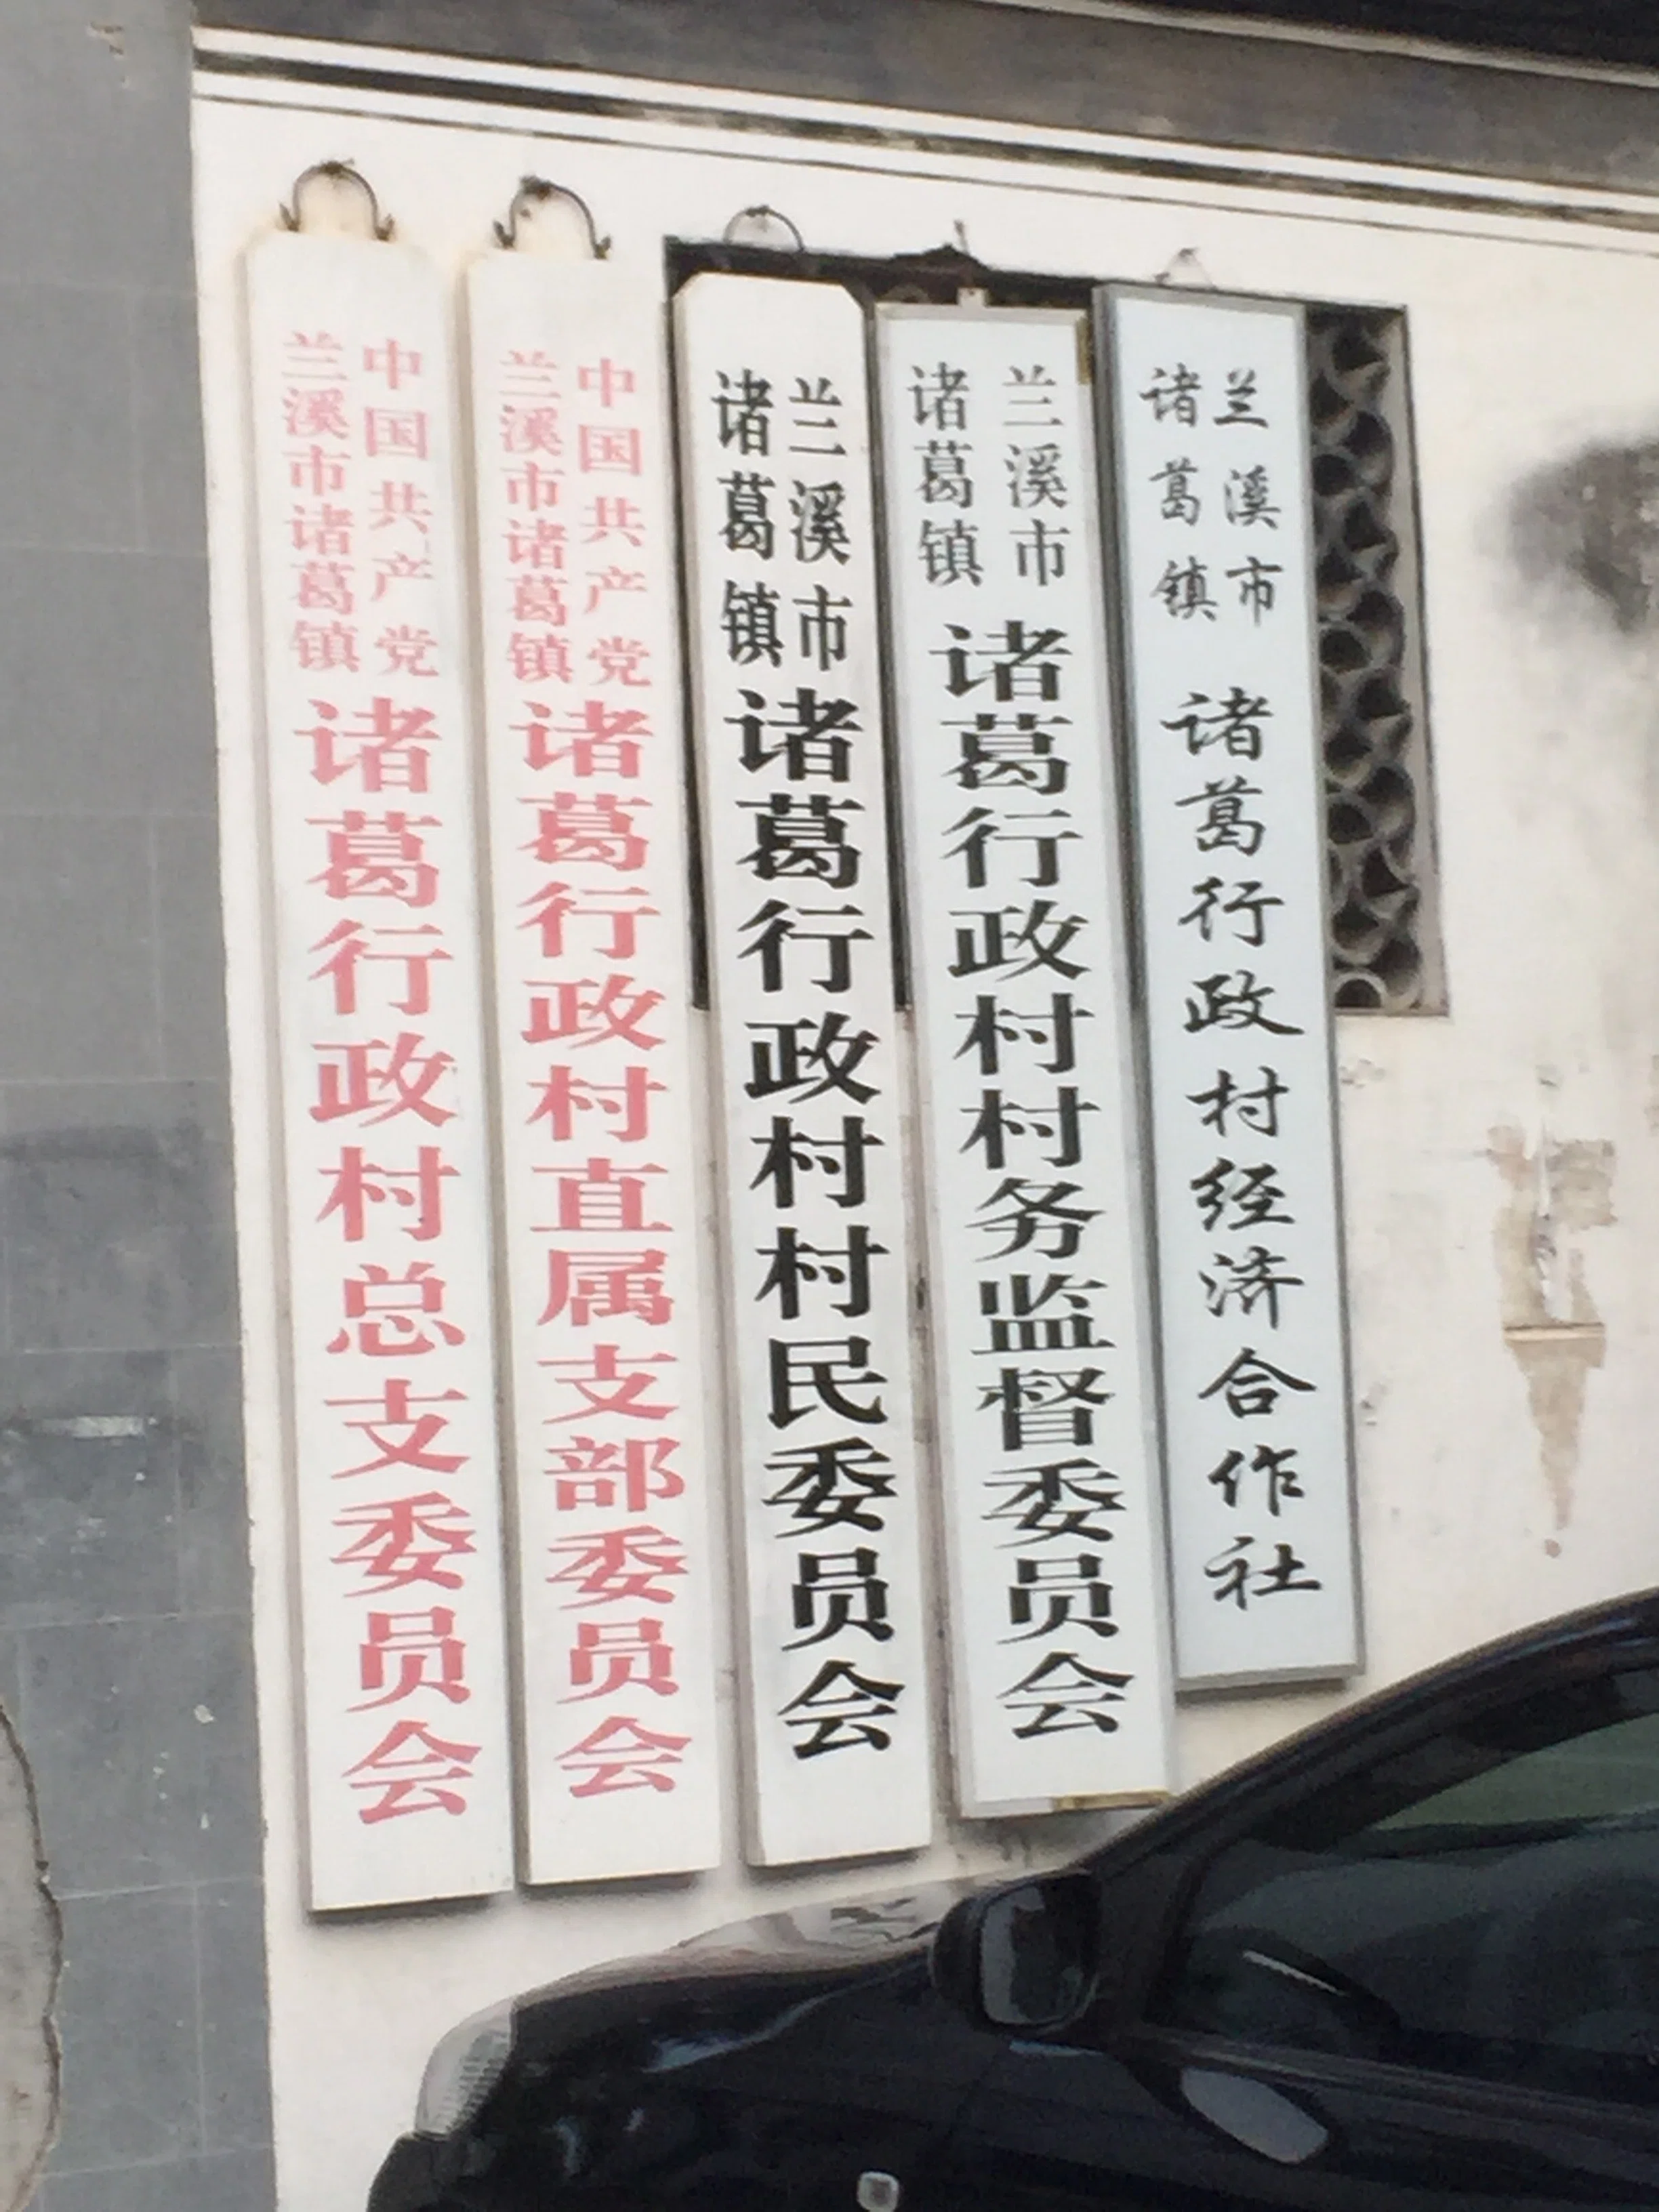 中国共产党
兰溪市诸葛镇
诸葛行政村总支委员会
中国共产党
兰溪市诸葛镇
诸葛行政村直属支部委员会
兰溪市
诸葛镇
诸葛行政村村民委员会
兰溪市
诸葛镇
诸葛行政村村务监督委员会
兰溪市
诸葛镇
诸葛行政村经济合作社